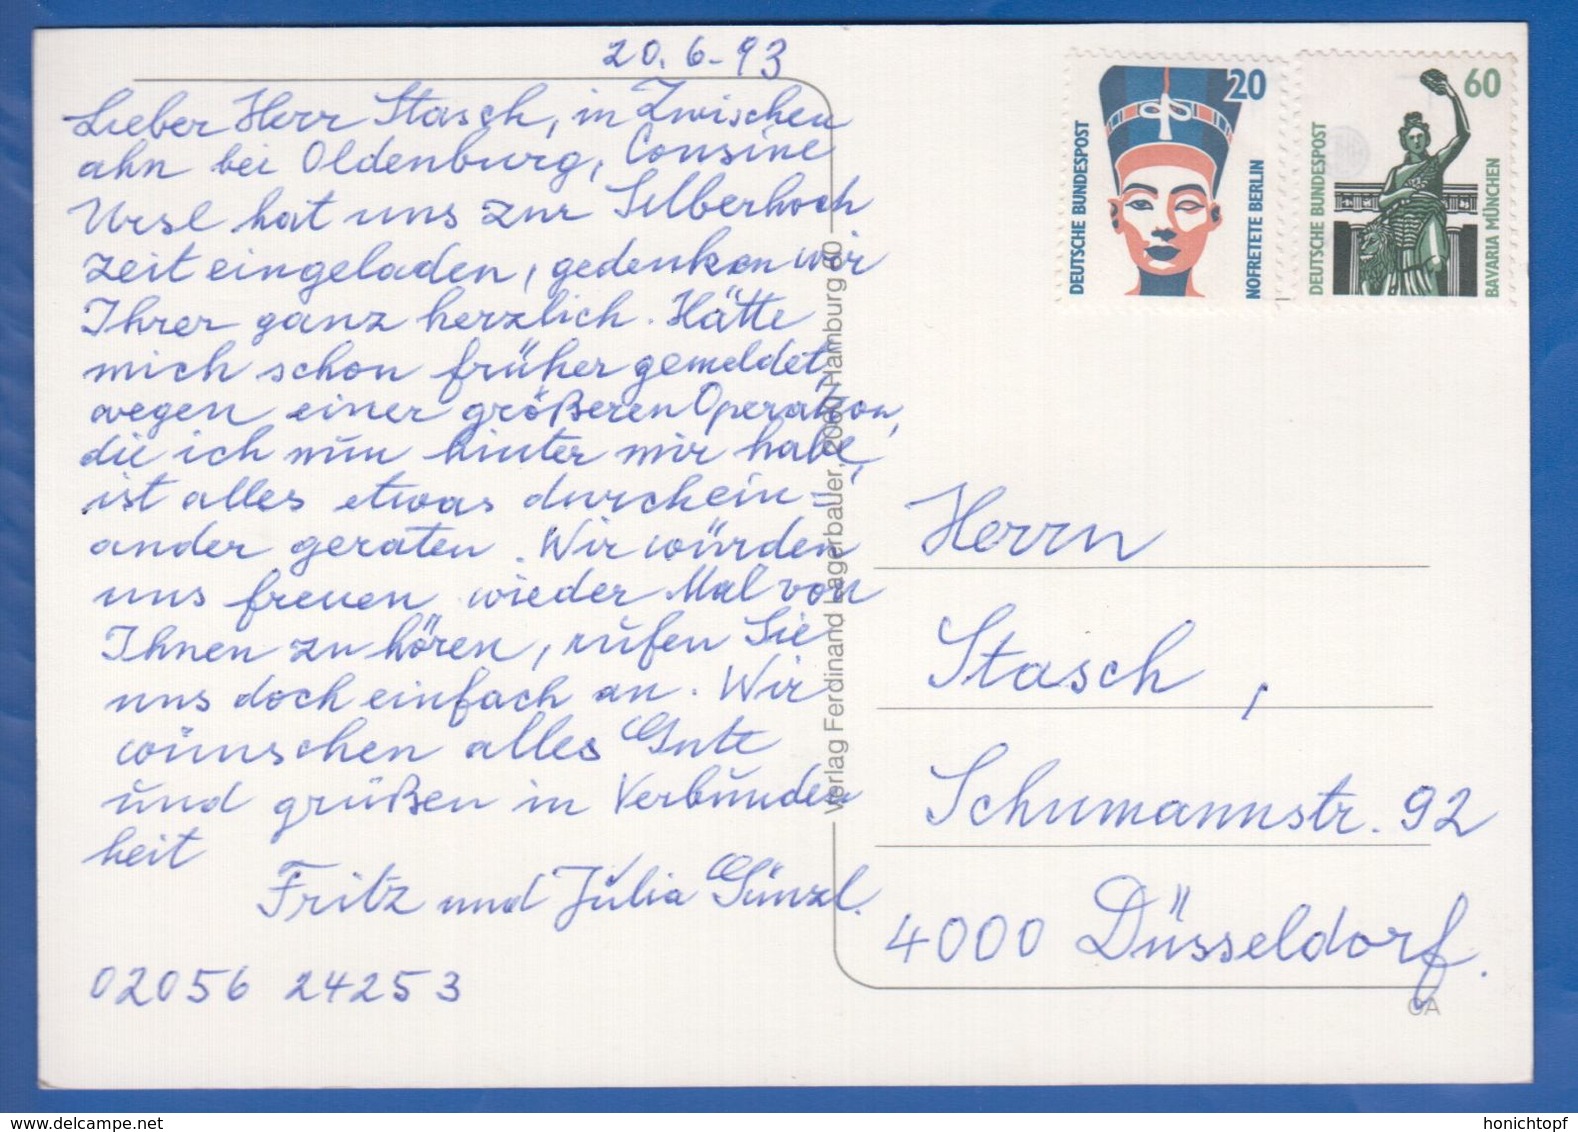 20.6-93
Lieber Herr Stasch, in Zwischen
ahn bei Oldenburg, Cousine
Ursl hat uns zur Silberhoch
zeit eingeladen, gedenken wir
Ihrer ganz herzlich. Hätte
mich schon früher gemeldet,
wegen einer größeren Operation,
die ich nun hinter mir habe,
ist alles etwas durchein-
ander geraten. Wir würden
uns freuen wieder Mal von
Ihnen zu hören, rufen Sie
uns doch einfach an. Wir
wünschen alles Gute
und grüßen in Verbunden
heit
Fritz und Julia Günzl.
02056 24253
Verlag Ferdinand Lagerbauer, 2000 Hamburg 60
20
DEUTSCHE BUNDESPOST
NOFRETETE BERLIN
60
DEUTSCHE BUNDESPOST
BAVARIA MÜNCHEN
Herrn
Stasch,
Schumannstr. 92
4000 Düsseldorf.
www.delcampe.net
honichtopf